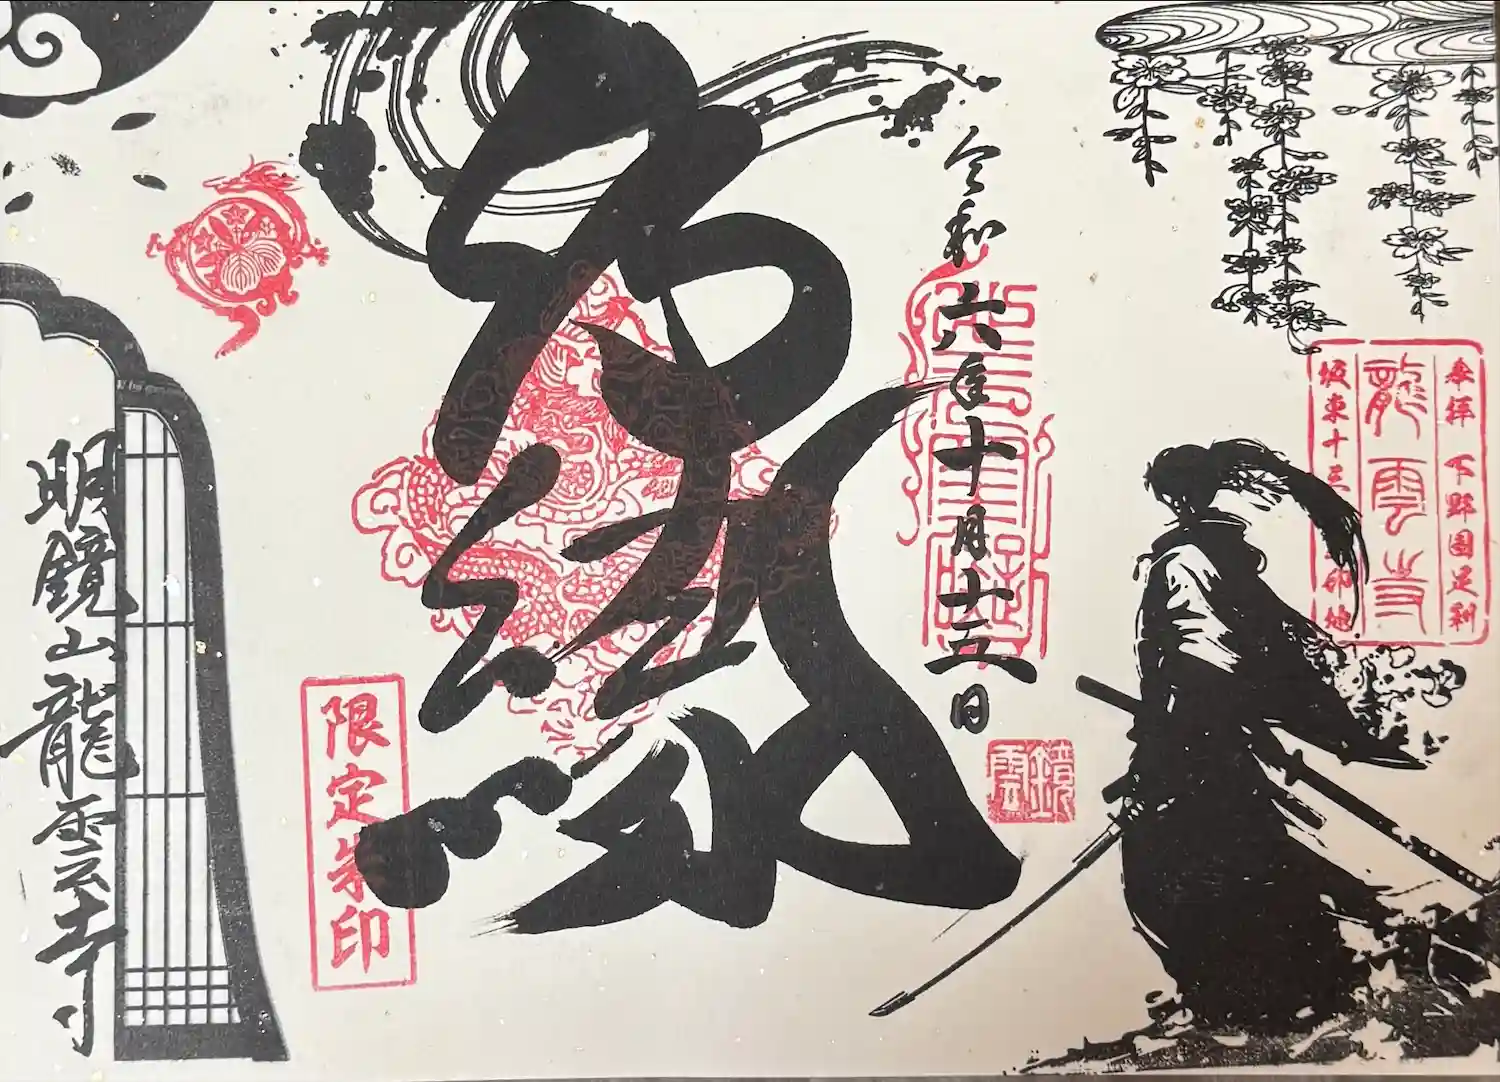 奉拝 下野圀足利
龍雲寺
坂東十三
卯地
令和六年十月十五日
鏡雲
縁
限定朱印
明鏡山龍雲寺